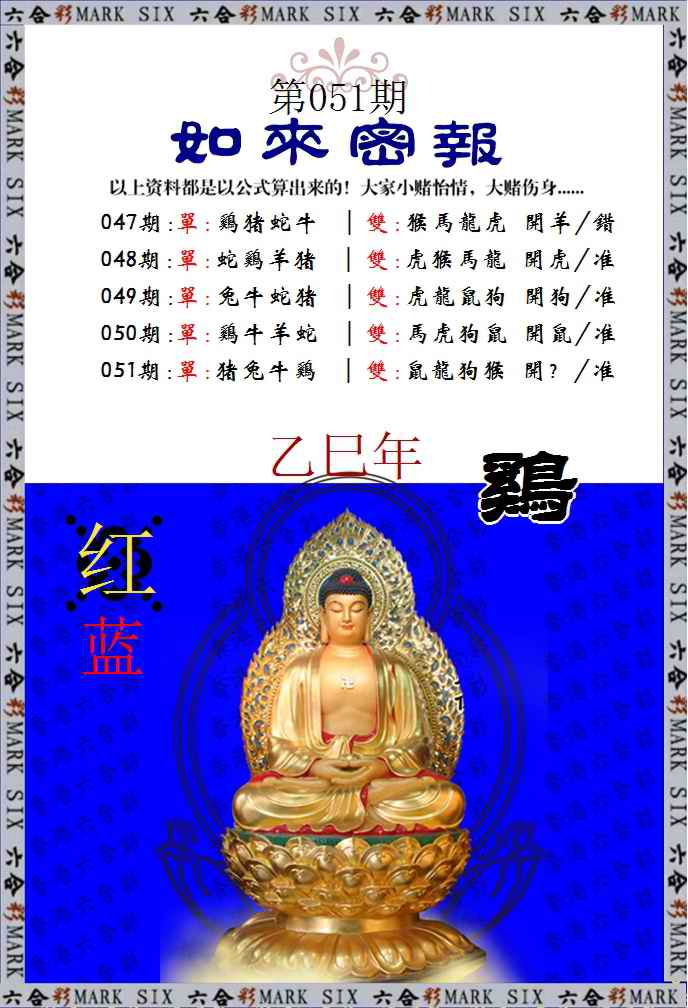 六合彩MARK SIX 六合彩MARK SIX 六合彩MARK SIX 六合彩MARK SIX
第051期
如來密報
以上资料都是以公式算出来的！大家小赌怡情，大赌伤身......
047期:單:鷄猪蛇牛 | 雙:猴馬龍虎 開羊/錯
048期:單:蛇鷄羊猪 | 雙:虎猴馬龍 開虎/准
049期:單:兔牛蛇猪 | 雙:虎龍鼠狗 開狗/准
050期:單:鷄牛羊蛇 | 雙:馬虎狗鼠 開鼠/准
051期:單:猪兔牛鷄 | 雙:鼠龍狗猴 開?/准
乙巳年
鷄
红
蓝
六合彩MARK SIX 六合彩MARK SIX 六合彩MARK SIX 六合彩MARK SIX